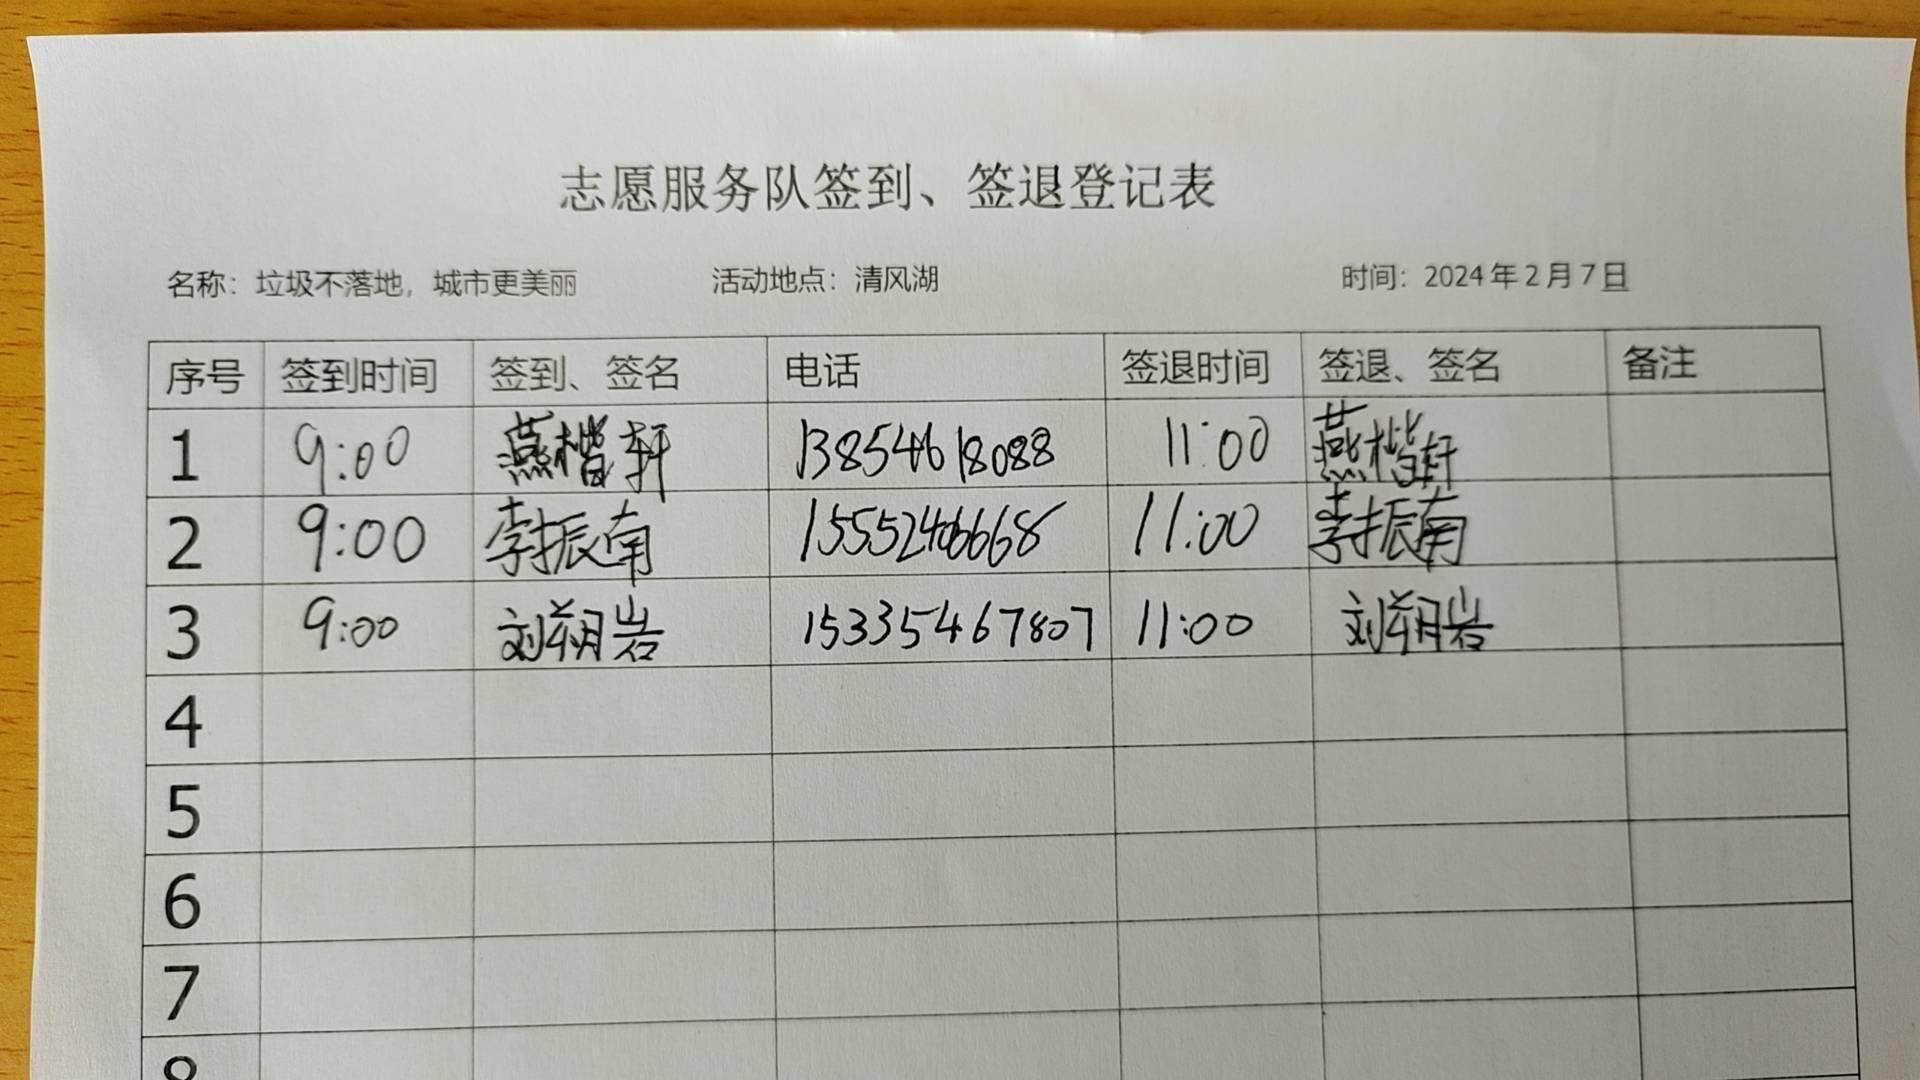 志愿服务队签到、签退登记表
名称：垃圾不落地，城市更美丽 活动地点：清风湖 时间：2024年2月7日
序号 签到时间 签到、签名 电话 签退时间 签退、签名 备注
1 9:00 燕楷轩 13854618088 11:00 燕楷轩
2 9:00 李振南 11:00 李振南
3 9:00 刘朔岩 15335467807 11:00 刘朔岩
4
5
6
7
8